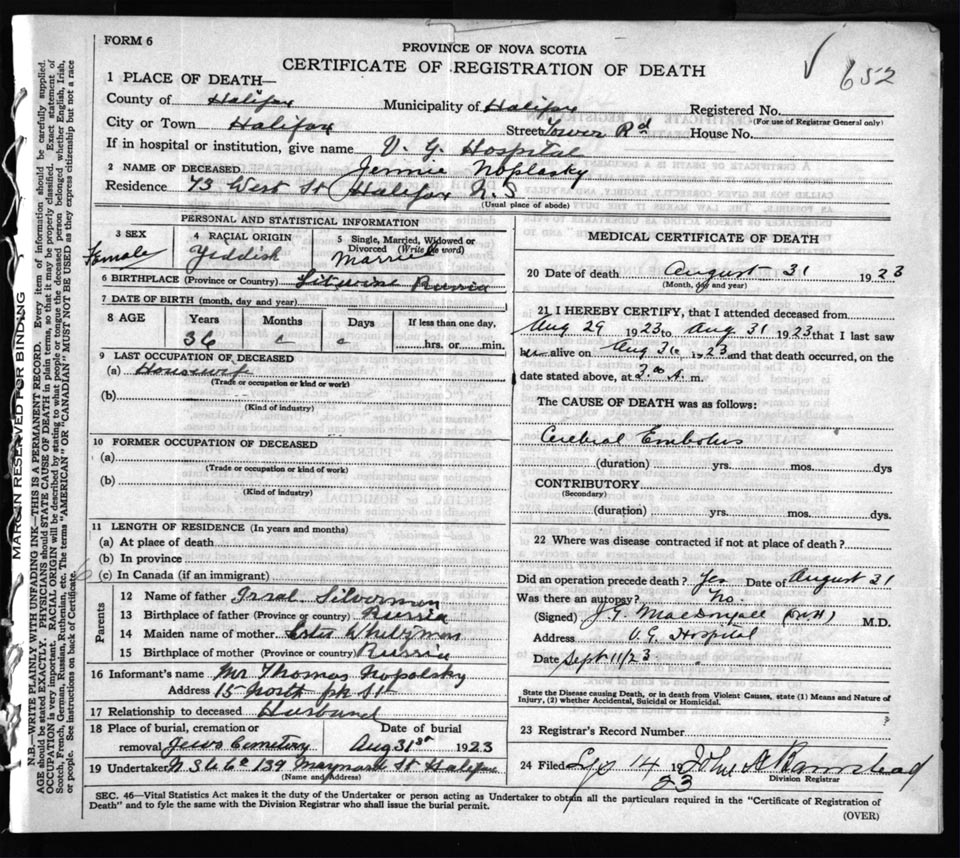 FORM 6
PROVINCE OF NOVA SCOTIA
CERTIFICATE OF REGISTRATION OF DEATH
652
1 PLACE OF DEATH—
County of Halifax Municipality of Halifax Registered No.
(For use of Registrar General only)
City or Town Halifax Street Tower Rd House No.
If in hospital or institution, give name V. G. Hospital
2 NAME OF DECEASED Jennie Noplasky
Residence 73 West St Halifax N.S
(Usual place of abode)
PERSONAL AND STATISTICAL INFORMATION
3 SEX
Female
4 RACIAL ORIGIN
Yiddish
5 Single, Married, Widowed or
Divorced (Write the word)
Married
6 BIRTHPLACE (Province or Country) Russia
7 DATE OF BIRTH (month, day and year)
8 AGE Years Months Days If less than one day,
36 hrs. or min.
9 LAST OCCUPATION OF DECEASED
(a) Housewife
(Trade or occupation or kind or work)
(b)
(Kind of industry)
10 FORMER OCCUPATION OF DECEASED
(a)
(Trade or occupation or kind of work)
(b)
(Kind of industry)
11 LENGTH OF RESIDENCE (In years and months)
(a) At place of death
(b) In province
(c) In Canada (if an immigrant)
Parents
12 Name of father Isral Silverman
13 Birthplace of father (Province or country) Russia
14 Maiden name of mother Ester
15 Birthplace of mother (Province or country) Russia
16 Informant's name Mr Thomas Nopolsky
Address 15 North pk St
17 Relationship to deceased Husband
18 Place of burial, cremation or
removal Jews Cemetery
Date of burial
Aug 31st 1923
19 Undertaker 139 Maynard St Halifax
(Name and Address)
MEDICAL CERTIFICATE OF DEATH
20 Date of death August 31 1923
(Month, day and year)
21 I HEREBY CERTIFY, that I attended deceased from
Aug 29 1923 to Aug 31 1923 that I last saw
alive on Aug 31 1923 and that death occurred, on the
date stated above, at A. m.
The CAUSE OF DEATH was as follows:
Cerebral Embolus
(duration) yrs. mos. dys
CONTRIBUTORY
(Secondary)
(duration) yrs. mos. dys.
22 Where was disease contracted if not at place of death?
Did an operation precede death? Yes Date of August 31
Was there an autopsy? No
(Signed) J. G. MacDougall M.D.
Address V.G. Hospital
Date Sept 11/23
State the Disease causing Death, or in death from Violent Causes, state (1) Means and Nature of
Injury, (2) whether Accidental, Suicidal or Homicidal.
23 Registrar's Record Number
24 Filed 14 1923 John
Division Registrar
SEC. 46—Vital Statistics Act makes it the duty of the Undertaker or person acting as Undertaker to obtain all the particulars required in the "Certificate of Registration of
Death" and to fyle the same with the Division Registrar who shall issue the burial permit.
(OVER)
MARGIN RESERVED FOR BINDING
N.B.—WRITE PLAINLY WITH UNFADING INK—THIS IS A PERMANENT RECORD. Every item of information should be carefully supplied.
AGE should be stated EXACTLY. PHYSICIANS should STATE CAUSE OF DEATH in plain terms, so that it may be properly classified. Exact statement of
OCCUPATION is very important. RACIAL ORIGIN will be described by stating to what people or tongue the deceased person belonged whether English, Irish,
Scotch, French, German, Russian, Ruthenian, etc. The terms "AMERICAN" OR "CANADIAN" MUST NOT BE USED as they express citizenship but not a race
or people. See instructions on back of Certificate.